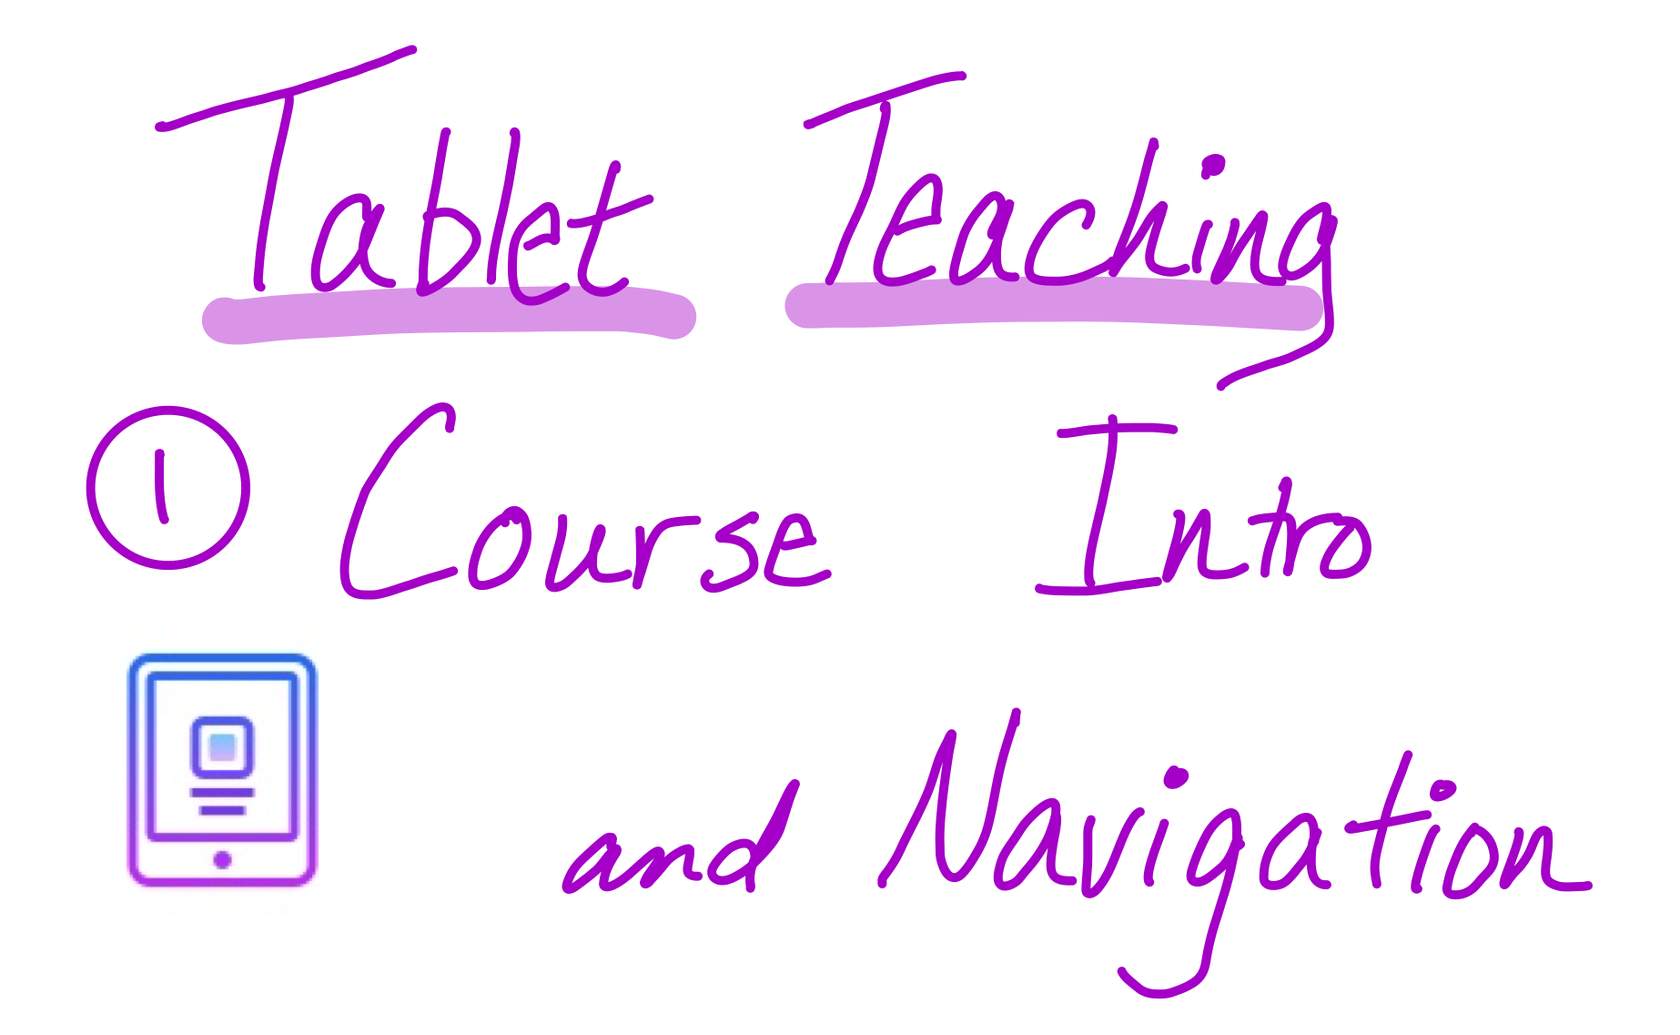 Tablet Teaching
1 Course Intro
and Navigation